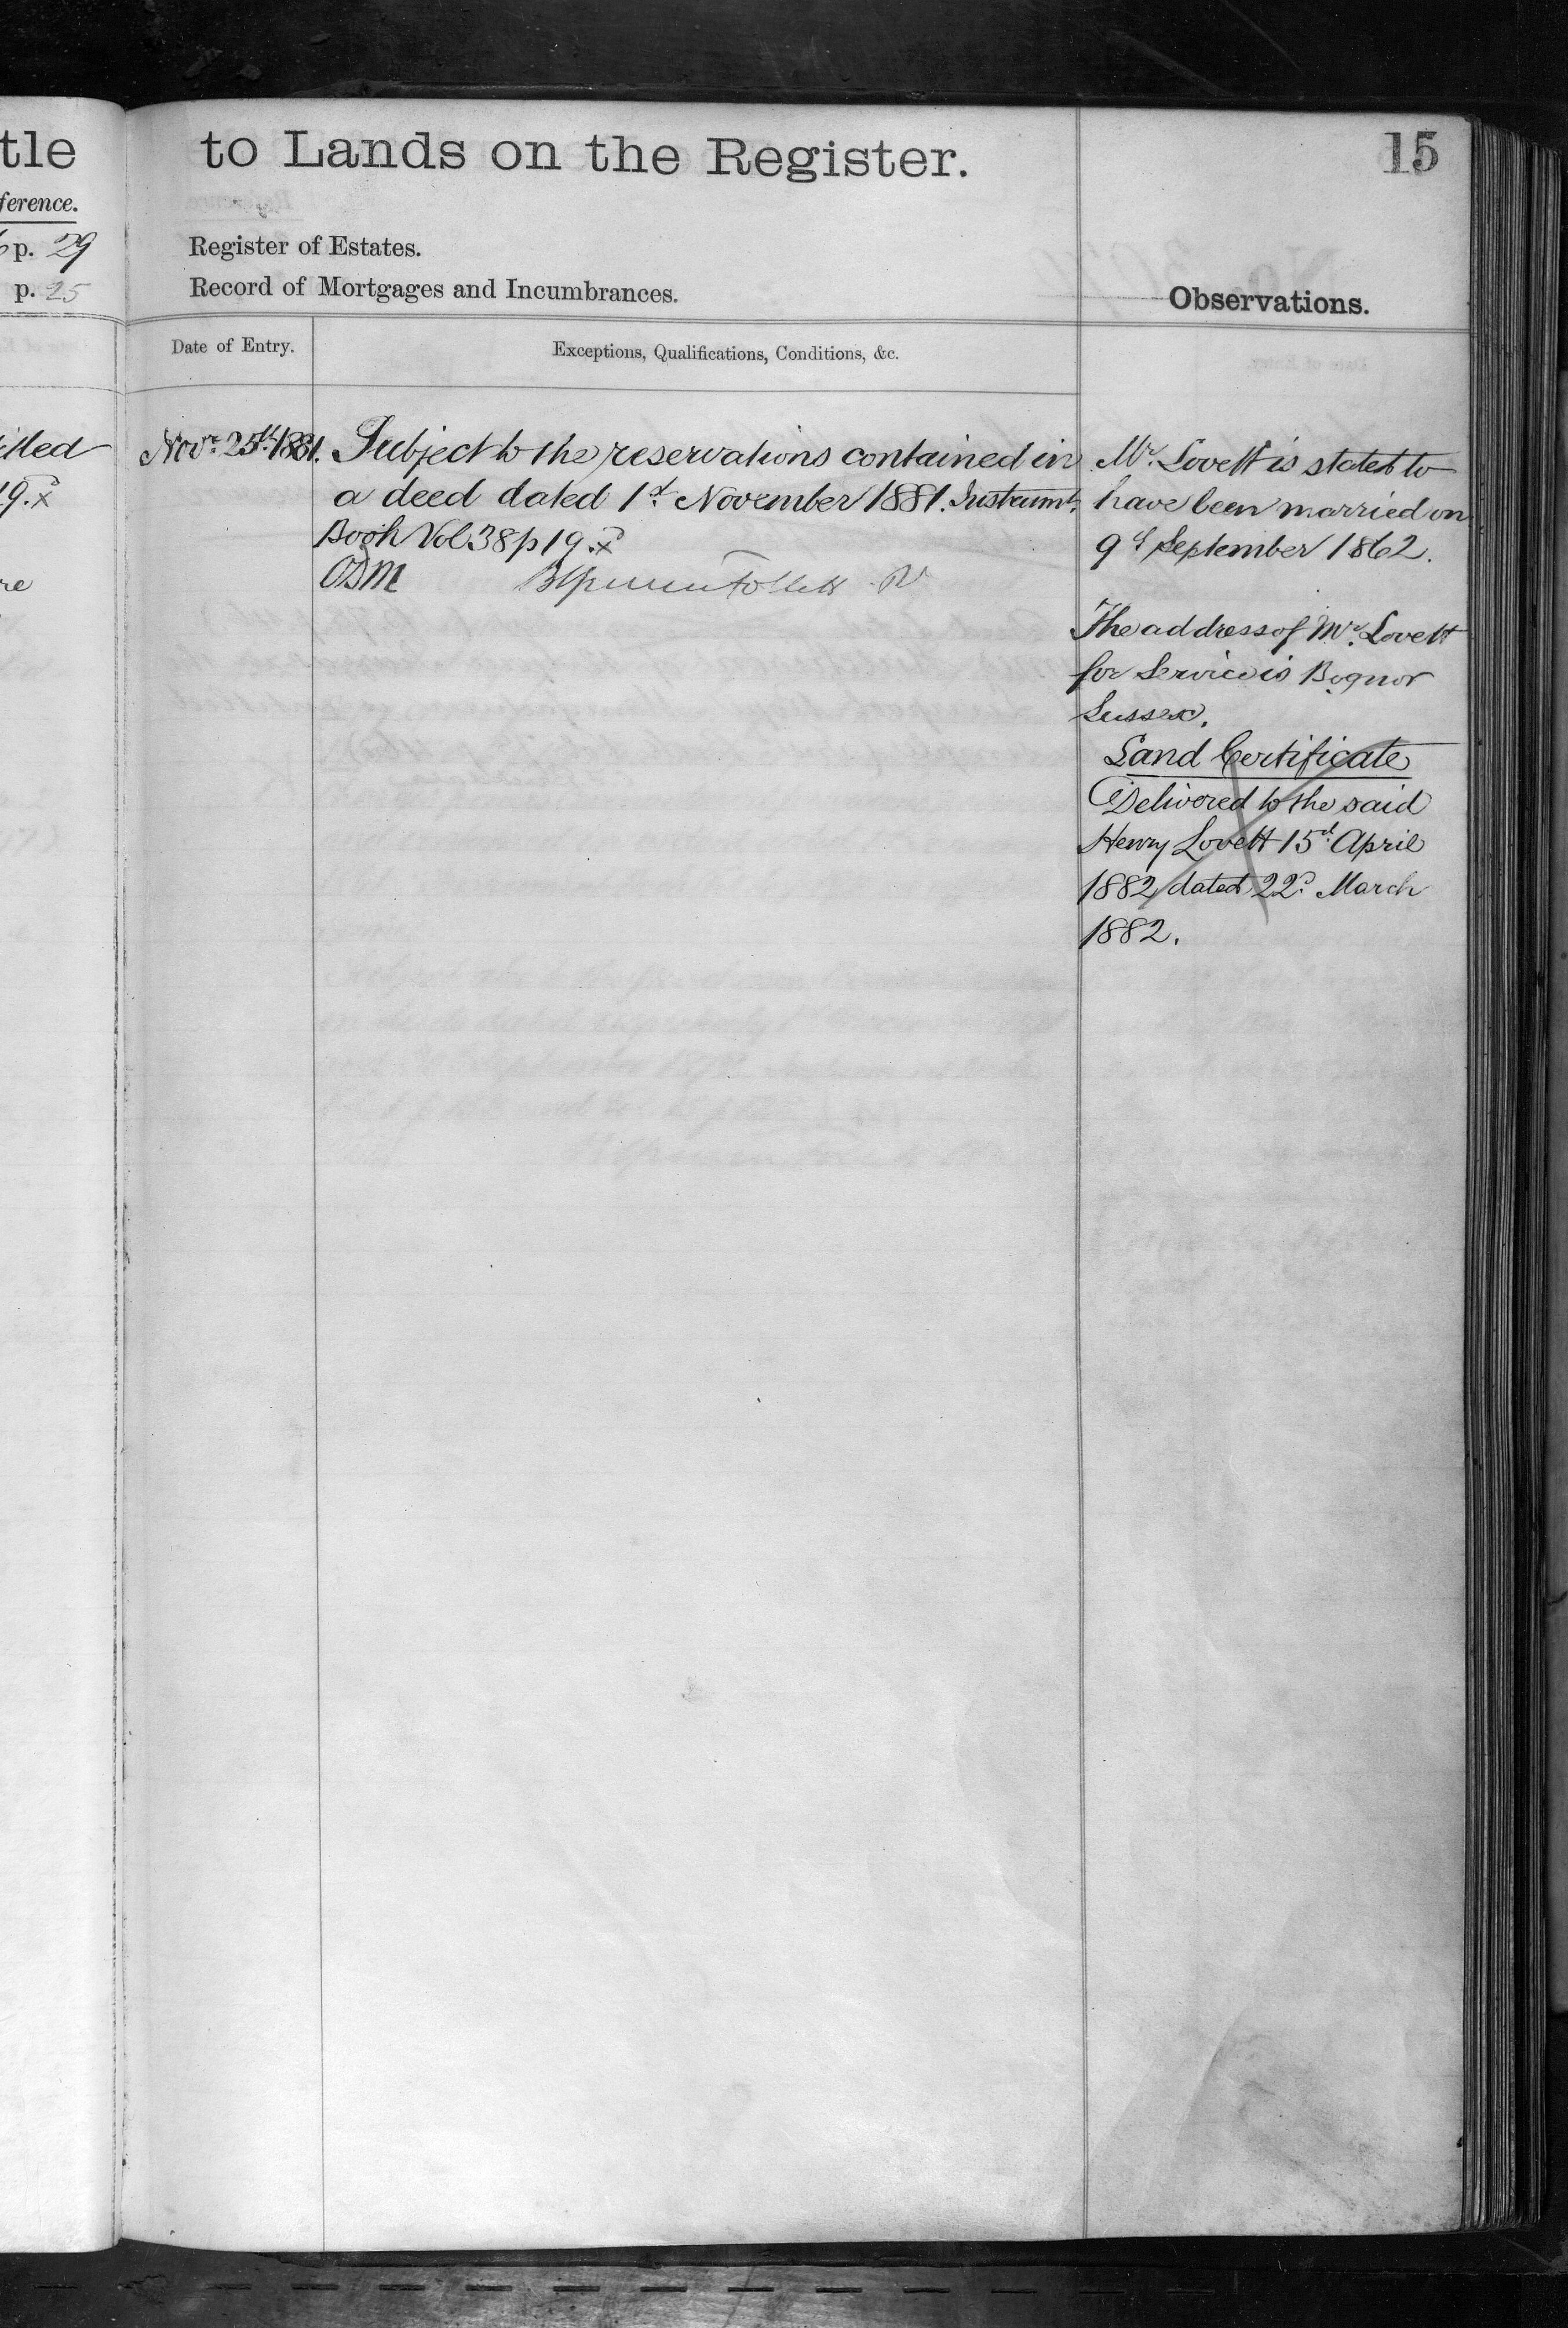 tle
ference.
p. 29
p. 25
19. x
re
to Lands on the Register.
15
Register of Estates.
Record of Mortgages and Incumbrances.
Observations.
Date of Entry.
Exceptions, Qualifications, Conditions, &c.
Novr. 25th 1881.
Subject to the reservations contained in
a deed dated 1st November 1881. Instrumt.
Book Vol 38 p 19. x
R
Mr. Lovett is stated to
have been married on
9th September 1862.
The address of Mr. Lovett
for Service is Bognor
Sussex.
Land Certificate
Delivered to the said
Henry Lovett 15th April
1882 dated 22d March
1882.